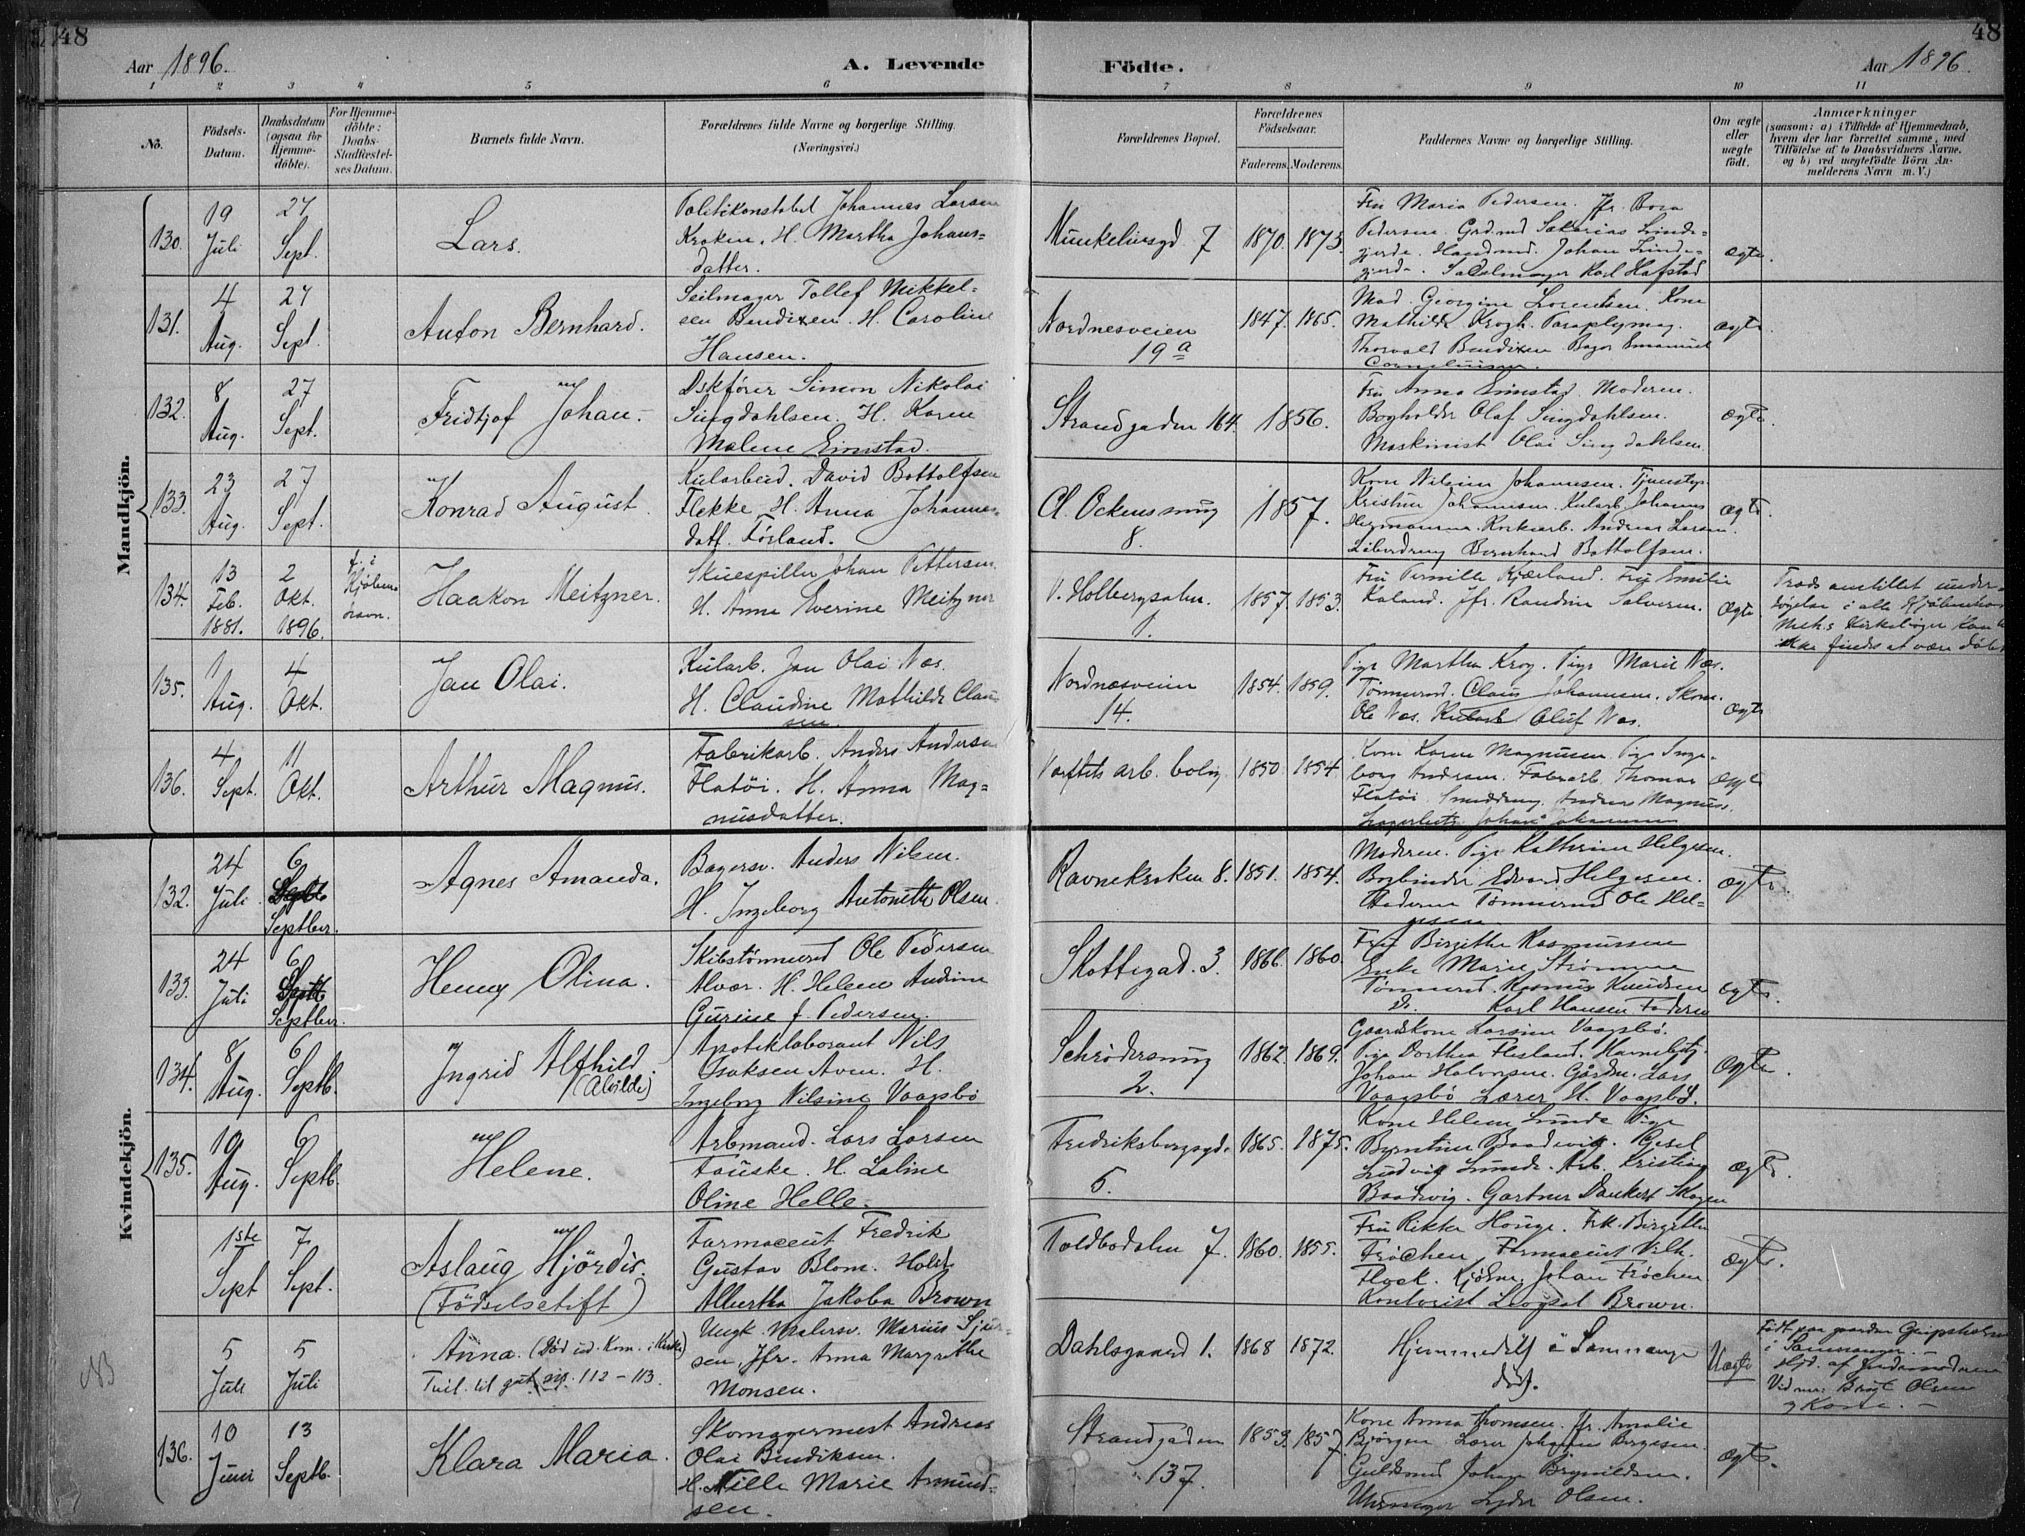 48
Aar 1896.
A. Levende Födte.
Aar 1896.
48
1 2 3 4 5 6 7 8 9 10 11
No.
Födsels-
Datum.
Daabsdatum
(ogsaa for
Hjemme-
döbte).
For Hjemme-
döbte:
Daabs-
Stadfæstel-
ses Datum.
Barnets fulde Navn.
Forældrenes fulde Navne og borgerlige Stilling.
(Næringsvei.)
Forældrenes Bopæl.
Forældrenes
Födselsaar.
Faderens. Moderens.
Faddernes Navne og borgerlige Stilling.
Om ægte
eller
uægte
födt.
Anmærkninger
(saasom: a) i Tilfælde af Hjemmedaab,
hvem der har forrettet samme, med
Tilföielse af to Daabsvidners Navne,
og b) ved uægtefödte Börn An-
melderens Navn m. V.)
Mandkjön.
130.
19
Juli
27
Sept.
Lars.
Politikonstabel Johannes Larsen
Kroken. H. Martha Johans-
datter.
7
1870. 1873.
Fru Maria Pedersen. Jfr.
Pedersen.
Karl Hafstad
ægte.
131.
4
Aug.
27
Sept.
Anton Bernhard.
Seilmager Tollef Mikkel-
sen Bendixen. H. Caroline
Hansen.
Nordnesveien
19a
1847. 1865.
Mad. Georgine Lorentsen. Kone
Mathilde Krogh. Paraplymag.
Thorvald Bendixen Bager Emanuel
ægte.
132.
8
Aug.
27
Sept.
Fridtjof Johan.
Simon Nikolai
Singdahlsen. H. Karen
Malene Eimstad.
Strandgaden 164.
1856.
Fru Anna Eimstad. Moderen.
Bogholder Olaf Singdahlsen.
Maskinist Olai Singdahlsen
ægte.
133.
23
Aug.
27
Sept.
Konrad August.
Kularbeid. David Bottolfsen
Flekke. H. Anna Johannes-
datt. Förland.
Cl. Ockenssmug
8.
1857.
Kone Nilsine Johannesen.
Johannesen. Kularb. Johannes
Andreas Larsen
Bottolfsen.
ægte.
134.
13
Feb.
1881.
2
Okt.
1896.
f. i
Kjöben-
havn.
Haakon Meitzner.
Skuespiller Johan Pettersen
H. Anna Everine Meitzner
V. Holbergsalm.
1.
1857. 1853.
Fru Pernille Kjærland. Fru Emilie
Kaland. Jfr. Randine Salvesen.
ægte.
Trods anstillet under-
søgelse i alle Kjøbenhavn
Kirkebøger kan
ikke findes at være døbt
135.
1
Aug.
4
Okt.
Jan Olai.
Kularb. Jan Olai Næs.
H. Claudine Mathilde Clau-
sen.
Nordnæsveien
14.
1854. 1859.
Pige Martha Krog. Pige Marie Næs.
Tömmermd. Claus Johannesen. Skom.
Ole Næs. Kularb. Oluf Næs.
ægte
136.
4
Sept.
11
Okt.
Arthur Magnus.
Fabrikarb. Anders Andersen
Flatöi. H. Anna Mag-
nusdatter.
Værftets arb. bolig
1850 1854.
Kone Karen Magnusen. Pige Inge-
borg Andersen. Fabrarb. Thomas
Flatöi. Smeddreng. Andreas Magnuss.
ægte
Kvindekjön.
132.
24
Juli
6
Septbr.
Agnes Amanda.
Bagersv. Anders Nilsen.
H. Ingeborg Antonette Olsen.
Ravnekroken 8.
1851. 1854.
Moderen. Pige Kathrine Helgesen.
Bogbinder Edvard Helgesen.
Faderen Tömmermd Ole Hel-
gesen
ægte.
133.
24
Juli
6
Septbr.
Henny Olina.
Skibstömmermd Ole Pedersen
Alvær. H. Helene Andrine
Gurine f. Pedersen.
Skottegad. 3.
1866. 1860.
Fru Birgithe Rasmussen
Enke Marie Strömme
Tömmermd. Rasmus Knudsen
Do. Karl Hansen Faderen
ægte.
134.
8
Aug.
6
Septb.
Ingrid Alfhild
(Alvilde).
Apotheklaborant Nils
Isaksen Aven. H.
Ingeborg Nilsine Vaagsbö
Schrödersmug
2.
1862. 1869.
Gaardskone Larsine Vaagsbö.
Pige Dorthea Flesland.
Johan Halvorsen. Gårdbr. Lars
Vaagsbö Lærer H. Vaagsbö.
ægte.
135.
19
Aug.
6
Septb.
Helene.
Arbmand. Lars Larsen
Fauske. H. Laline
Oline Helle.
Fredriksborgsgd.
5.
1865. 1875.
Kone Helene Lunde Pige
Baadsvig. Gesel
Ludvig Lunde. Arb. Kristian
Baadsvig. Gartner Dankert Skagen
ægte.
1ste
Sept
7
Sept.
Aslaug Hjördis.
(Födselsstift)
Farmaceut Fredrik
Gustav Blom. Holdt
Albertha Jakoba Brown
Toldbodalm 7.
1860. 1855.
Fru Rikke Houge. Frk. Birgitte
Fröchen Farmaceut Vilh.
Flock. Kjöbm. Johan Fröchen.
Kontorist Brown.
ægte.
NB
5
Juli
5
Juli
Anna. (Död ud. Kom. i Kirke)
Tvil. til gut No. 112-113.
Ungk. Malersv. Marius Sjur-
sen. Jfr. Anna Margrethe
Monsen.
Dahlsgaard 1.
1868 1872.
Hjemmedøbt i Samnanger
død.
Uægte
Født paa gaarden
i Samnanger.
Hjd. af Jordemoderen
Vidner: Olsen
og Kone.
136.
10
Juni
13
Septb.
Klara Maria.
Skomagermest Andreas
Olai Bendiksen.
H. Nille Marie Amund-
sen.
Strandgaden
137.
1853. 1857.
Kone Anna Thomsen. Jfr. Amalie
Bjørgen Lærer Johannes Børgesen.
Guldsmed Johan Brynildsen.
Uhrmager Lyder Olsen.
ægte.